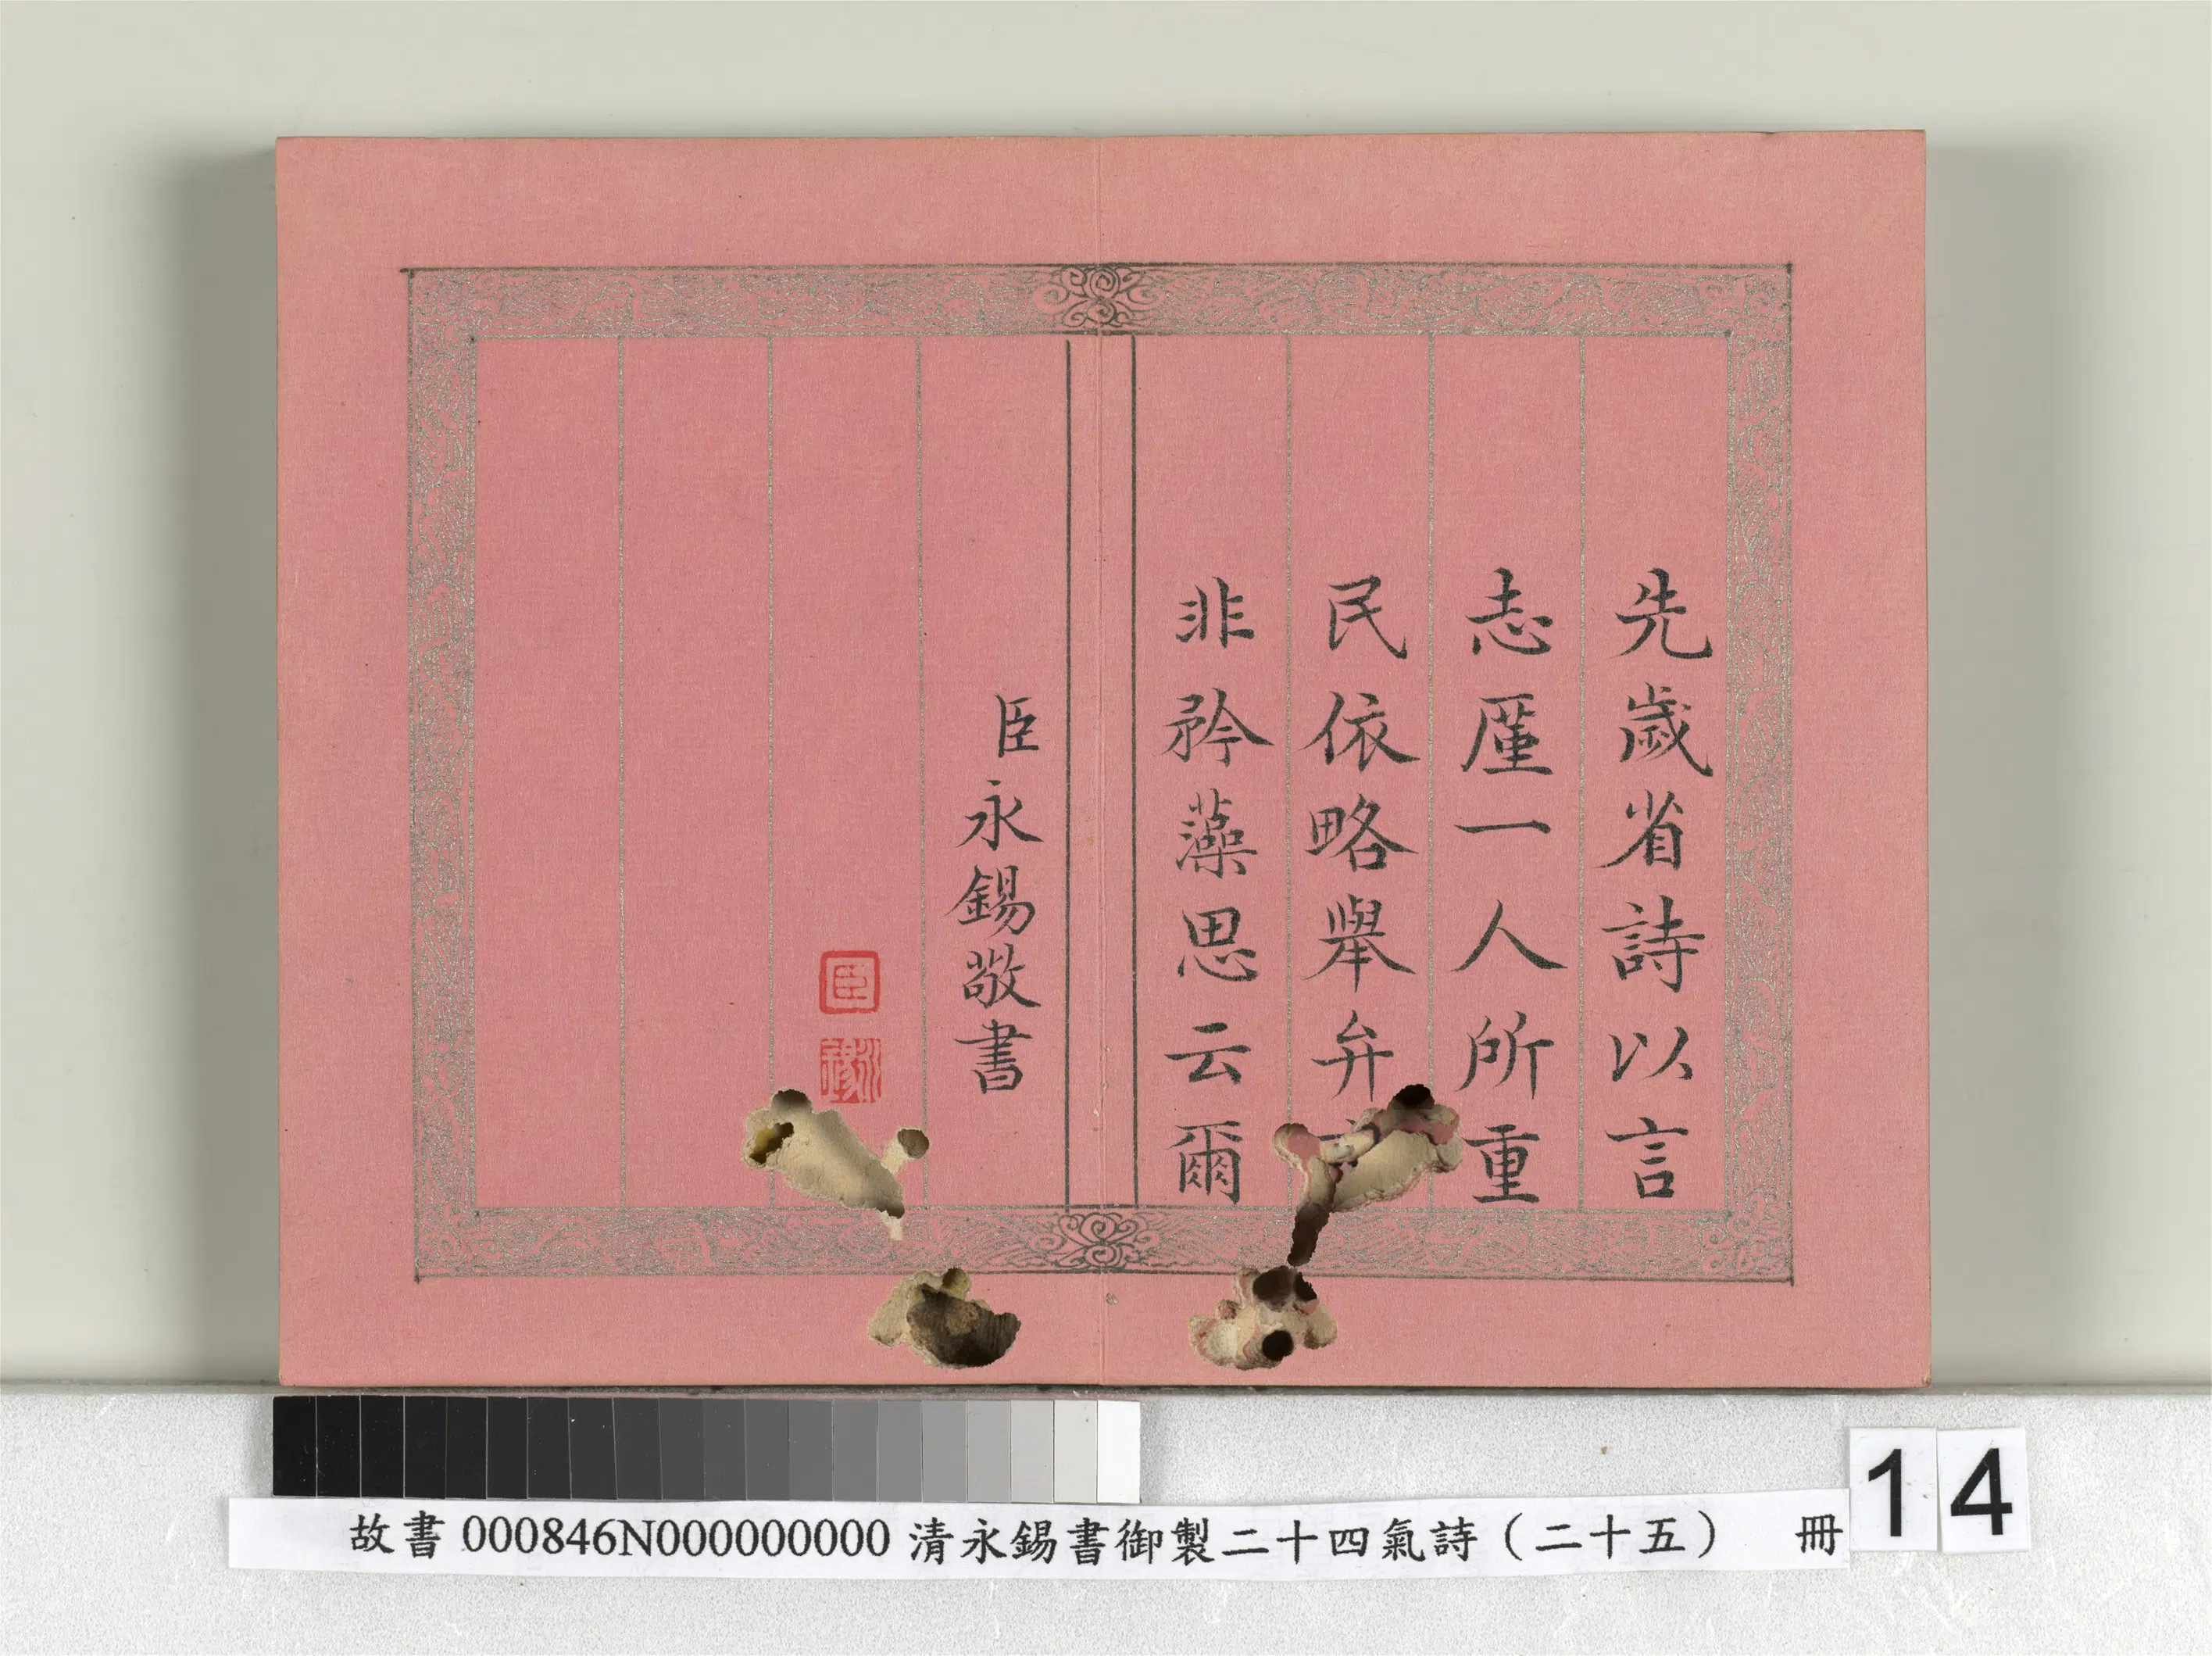 先歲省詩以言
志廑一人所重
民依略舉弁
非矜藻思云爾
臣永錫敬書
臣
永錫
故書 000846N000000000 清永錫書御製二十四氣詩（二十五） 冊
14